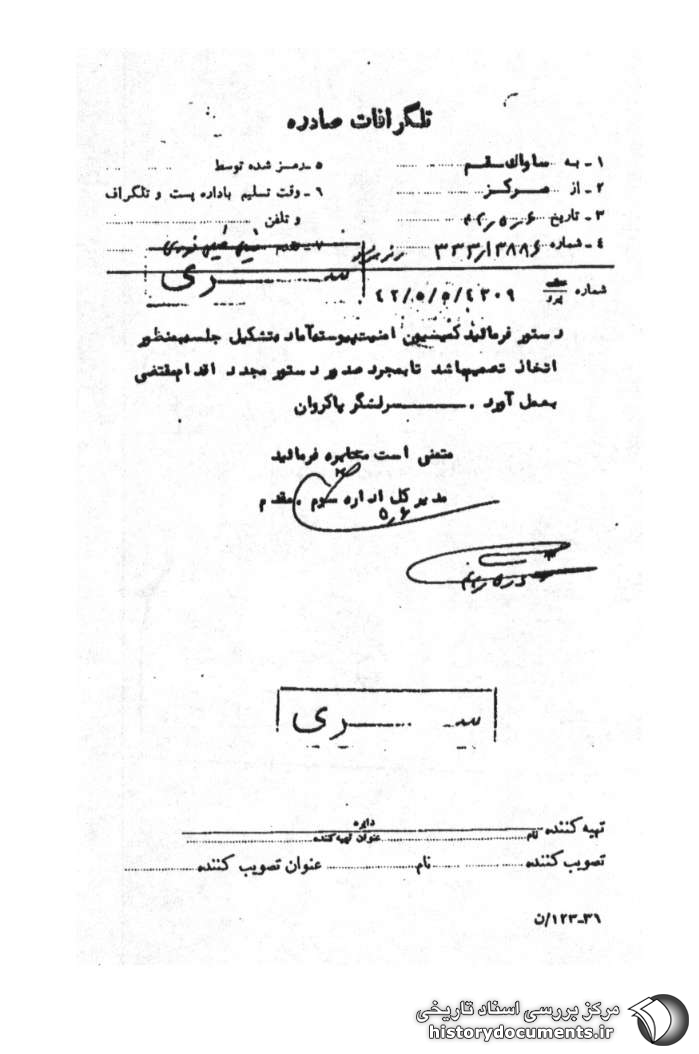 تلگرافات صادره
۱ - به ساواك قم
۲ - از مركز
۳ - تاریخ ۴۲٫۵٫۶
۴ - شماره ۳۳۳٫۱۳۸۸۶
۵ - رمز شده توسط
۶ - وقت تسلیم باداره پست و تلگراف
و تلفن
سری
شماره ۴۲/۵/۵/۴۳۰۹
دستور فرمائید كمیسیون امنیت پیوسته آماده تشكیل جلسه بمنظور
اتخاذ تصمیم باشد تا بمجرد صدور دستور مجدد اقدام مقتضی
بعمل آورد . سرلشگر پاكروان
متمنی است مخابره فرمائید
مدیر كل اداره سوم . مقدم
۵٫۶
سری
تهیه كننده
دایره
نام
عنوان تهیه كننده
تصویب كننده
نام
عنوان تصویب كننده
۳۱-۱۲۳/ن
مركز بررسی اسناد تاریخی
historydocuments.ir